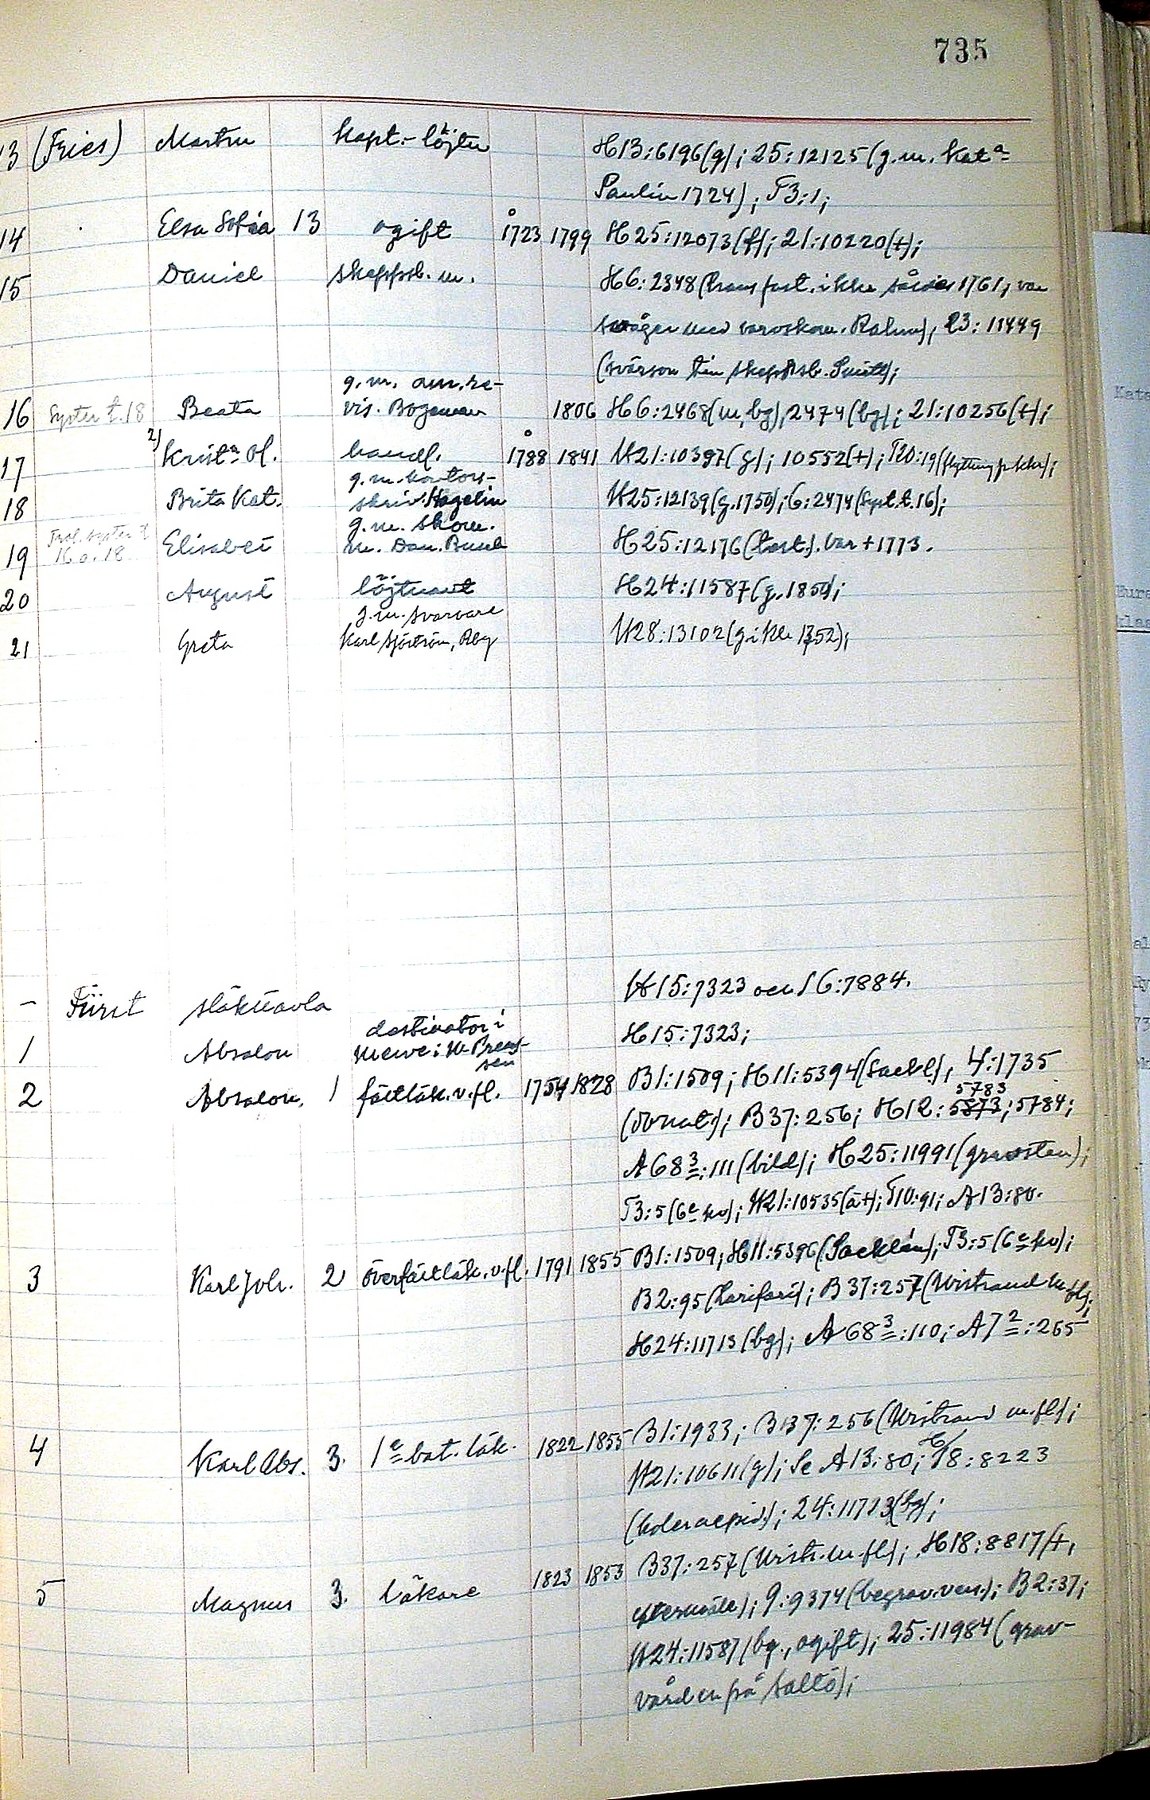 735
13 (Fries) Martin Kapt.-löjtn H13:6196(g); 25:12125(g.m. Kat a
Paulin 1724); T3:1;
14 Elsa Sofia 13 ogift å 1723 1799 H25:12073(f); 21:10220(+);
15 Daniel skeppsb. m. H6:2348(hans fast. ikke såldes 1761, var
svåger med varvskom. Rahm); 23:11449
(svärson till skeppsb. Smitt);
g.m. am.re-
16 Syster t. 18 Beata vis. Bogeman 1806 H6:2468(m, bg), 2474(bg); 21:10256(+);
17 2) Krist a Ol. handl. å 1788 1841 H21:10397(g); 10552(+); T20:19(flyttning fr. Kchr);
g.m. kontors-
18 Brita Kat. skriv. Hagelin H25:12139(g.1750); 6:2474(syst. t. 16);
Trol. syster t g.m. skom.
19 16 o. 18 Elisabet m. Dan. Busck H25:12176(test). Var +1773.
20 August löjtnant H24:11587(g.1850);
g.m. svarvare
21 Greta Karl Sjöström, Rby H28:13102(g. ikke 1752);
– Fürst släkttavla H15:7323 och 16:7884.
destinator i
1 Absalon Mewe i W. Preus- H15:7323;
sen
2 Absalon, 1 fältläk. v. fl. 1754 1828 B1:1509; H11:5394(Sackl.), 4:1735
(Donat); B37:256; H12:5873 5783; 5784;
A68 3:111(bild); H25:11991(gravsten);
T3:5(6 e kv); H21:10535(ä+); T10:91; A13:80.
3 Karl Joh. 2 överfältläk. v. fl. 1791 1855 B1:1509; H11:5396(Sacklén); T3:5(6 e kv);
B2:95(Larifari); B37:257(Wistrand m fl);
H24:11713(bg); A68 3:110; A7 2:265
4 Karl Abs. 3. 1 e bat. läk. 1822 1855 B1:1933; B37:256(Wistrand m.fl);
H21:10611(g); Se A13:80; H18:8223
(koleraepid.); 24:11713(bg);
5 Magnus 3. läkare 1823 1853 B37:257(Wistr. m. fl); H18:8817(+,
eftermäle); 9:9374(begrav.ven.); B2:37;
H24:11587(bg., ogift); 25:11984(grav-
vården på Saltö);